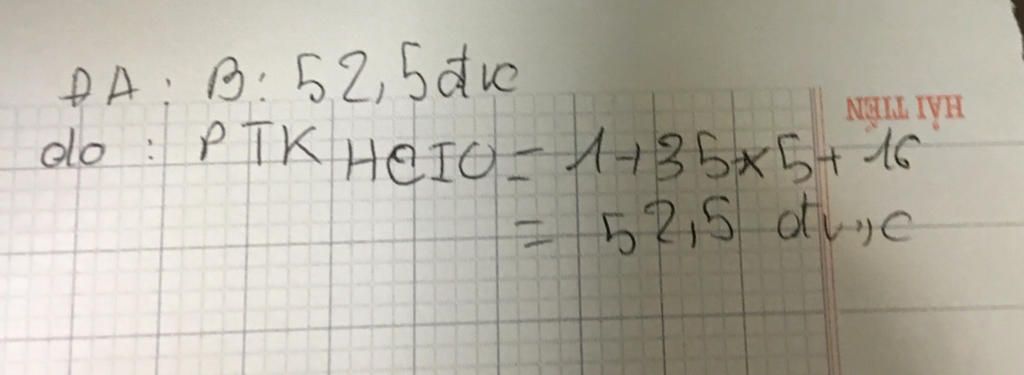 ĐA : B : 52,5 đvc
HẢI TIẾN
do : PTK HClO = 1 + 35 x 5 + 16
= 52,5 đv,,c